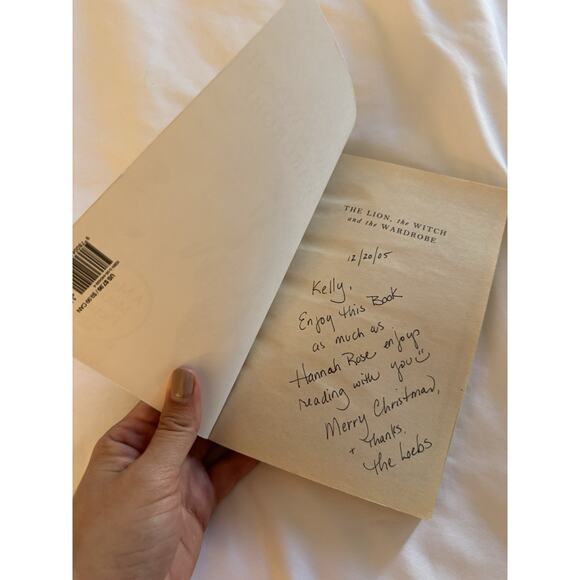 THE LION, the WITCH
and the WARDROBE
12/20/05
Kelly,
Enjoy this Book
as much as
Hannah Rose enjoys
reading with you
Merry Christmas,
+ Thanks,
the Loebs